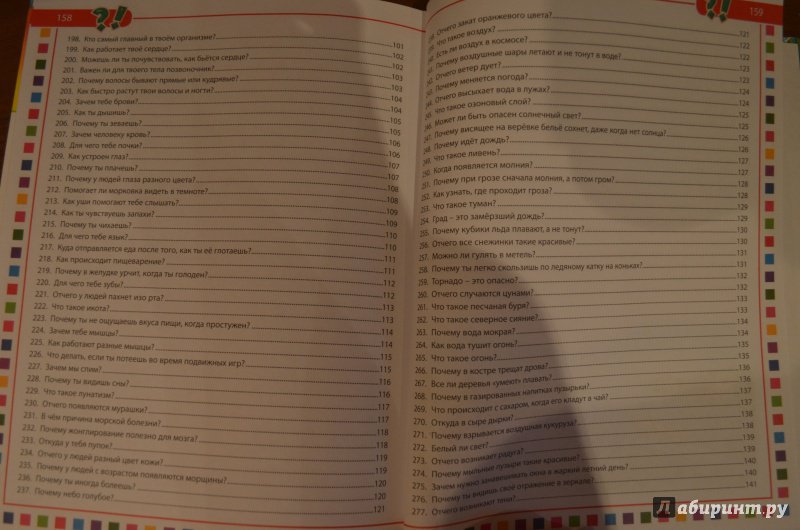 158
?!
198. Кто самый главный в твоём организме? 101
199. Как работает твоё сердце? 102
200. Можешь ли ты почувствовать, как бьётся сердце? 102
201. Важен ли для твоего тела позвоночник? 102
202. Почему волосы бывают прямые или кудрявые? 103
203. Как быстро растут твои волосы и ногти? 103
204. Зачем тебе брови? 104
205. Как ты дышишь? 104
206. Почему ты зеваешь? 105
207. Зачем человеку кровь? 105
208. Для чего тебе почки? 106
209. Как устроен глаз? 106
210. Почему ты плачешь? 107
211. Почему у людей глаза разного цвета? 107
212. Помогает ли морковка видеть в темноте? 108
213. Как уши помогают тебе слышать? 108
214. Как ты чувствуешь запахи? 109
215. Почему ты чихаешь? 109
216. Для чего тебе язык? 110
217. Куда отправляется еда после того, как ты её глотаешь? 110
218. Как происходит пищеварение? 111
219. Почему в желудке урчит, когда ты голоден? 111
220. Для чего тебе зубы? 112
221. Отчего у людей пахнет изо рта? 112
222. Что такое икота? 113
223. Почему ты не ощущаешь вкуса пищи, когда простужен? 113
224. Зачем тебе мышцы? 114
225. Как работают разные мышцы? 114
226. Что делать, если ты потеешь во время подвижных игр? 115
227. Зачем мы спим? 115
228. Почему ты видишь сны? 116
229. Что такое лунатизм? 116
230. Отчего появляются мурашки? 117
231. В чём причина морской болезни? 117
232. Почему жонглирование полезно для мозга? 118
233. Откуда у тебя пупок? 118
234. Отчего у людей разный цвет кожи? 119
235. Почему у людей с возрастом появляются морщины? 119
236. Почему ты иногда болеешь? 120
237. Почему небо голубое? 121
?!
159
Отчего закат оранжевого цвета? 121
Что такое воздух? 121
Есть ли воздух в космосе? 122
Почему воздушные шары летают и не тонут в воде? 122
Отчего ветер дует? 123
Почему меняется погода? 123
Отчего высыхает вода в лужах? 124
Что такое озоновый слой? 124
Может ли быть опасен солнечный свет? 125
247. Почему висящее на верёвке бельё сохнет, даже когда нет солнца? 125
248. Почему идёт дождь? 126
249. Что такое ливень? 126
250. Когда появляется молния? 127
251. Почему при грозе сначала молния, а потом гром? 127
252. Как узнать, где проходит гроза? 128
253. Что такое туман? 128
254. Град – это замёрзший дождь? 129
255. Почему кубики льда плавают, а не тонут? 129
256. Отчего все снежинки такие красивые? 130
257. Можно ли гулять в метель? 130
258. Почему ты легко скользишь по ледяному катку на коньках? 131
259. Торнадо – это опасно? 131
260. Отчего случаются цунами? 132
261. Что такое песчаная буря? 132
262. Что такое северное сияние? 133
263. Почему вода мокрая? 134
264. Как вода тушит огонь? 134
265. Что такое огонь? 135
266. Почему в костре трещат дрова? 135
267. Все ли деревья «умеют» плавать? 136
268. Почему в газированных напитках пузырьки? 136
269. Что происходит с сахаром, когда его кладут в чай? 137
270. Откуда в сыре дырки? 137
271. Почему взрывается воздушная кукуруза? 138
272. Белый ли свет? 138
273. Отчего возникает радуга? 139
274. Почему мыльные пузыри такие красивые? 139
275. Зачем нужно занавешивать окна в жаркий летний день? 140
276. Почему ты видишь своё отражение в зеркале? 140
277. Отчего возникают тени? 141
Лабиринт.ру